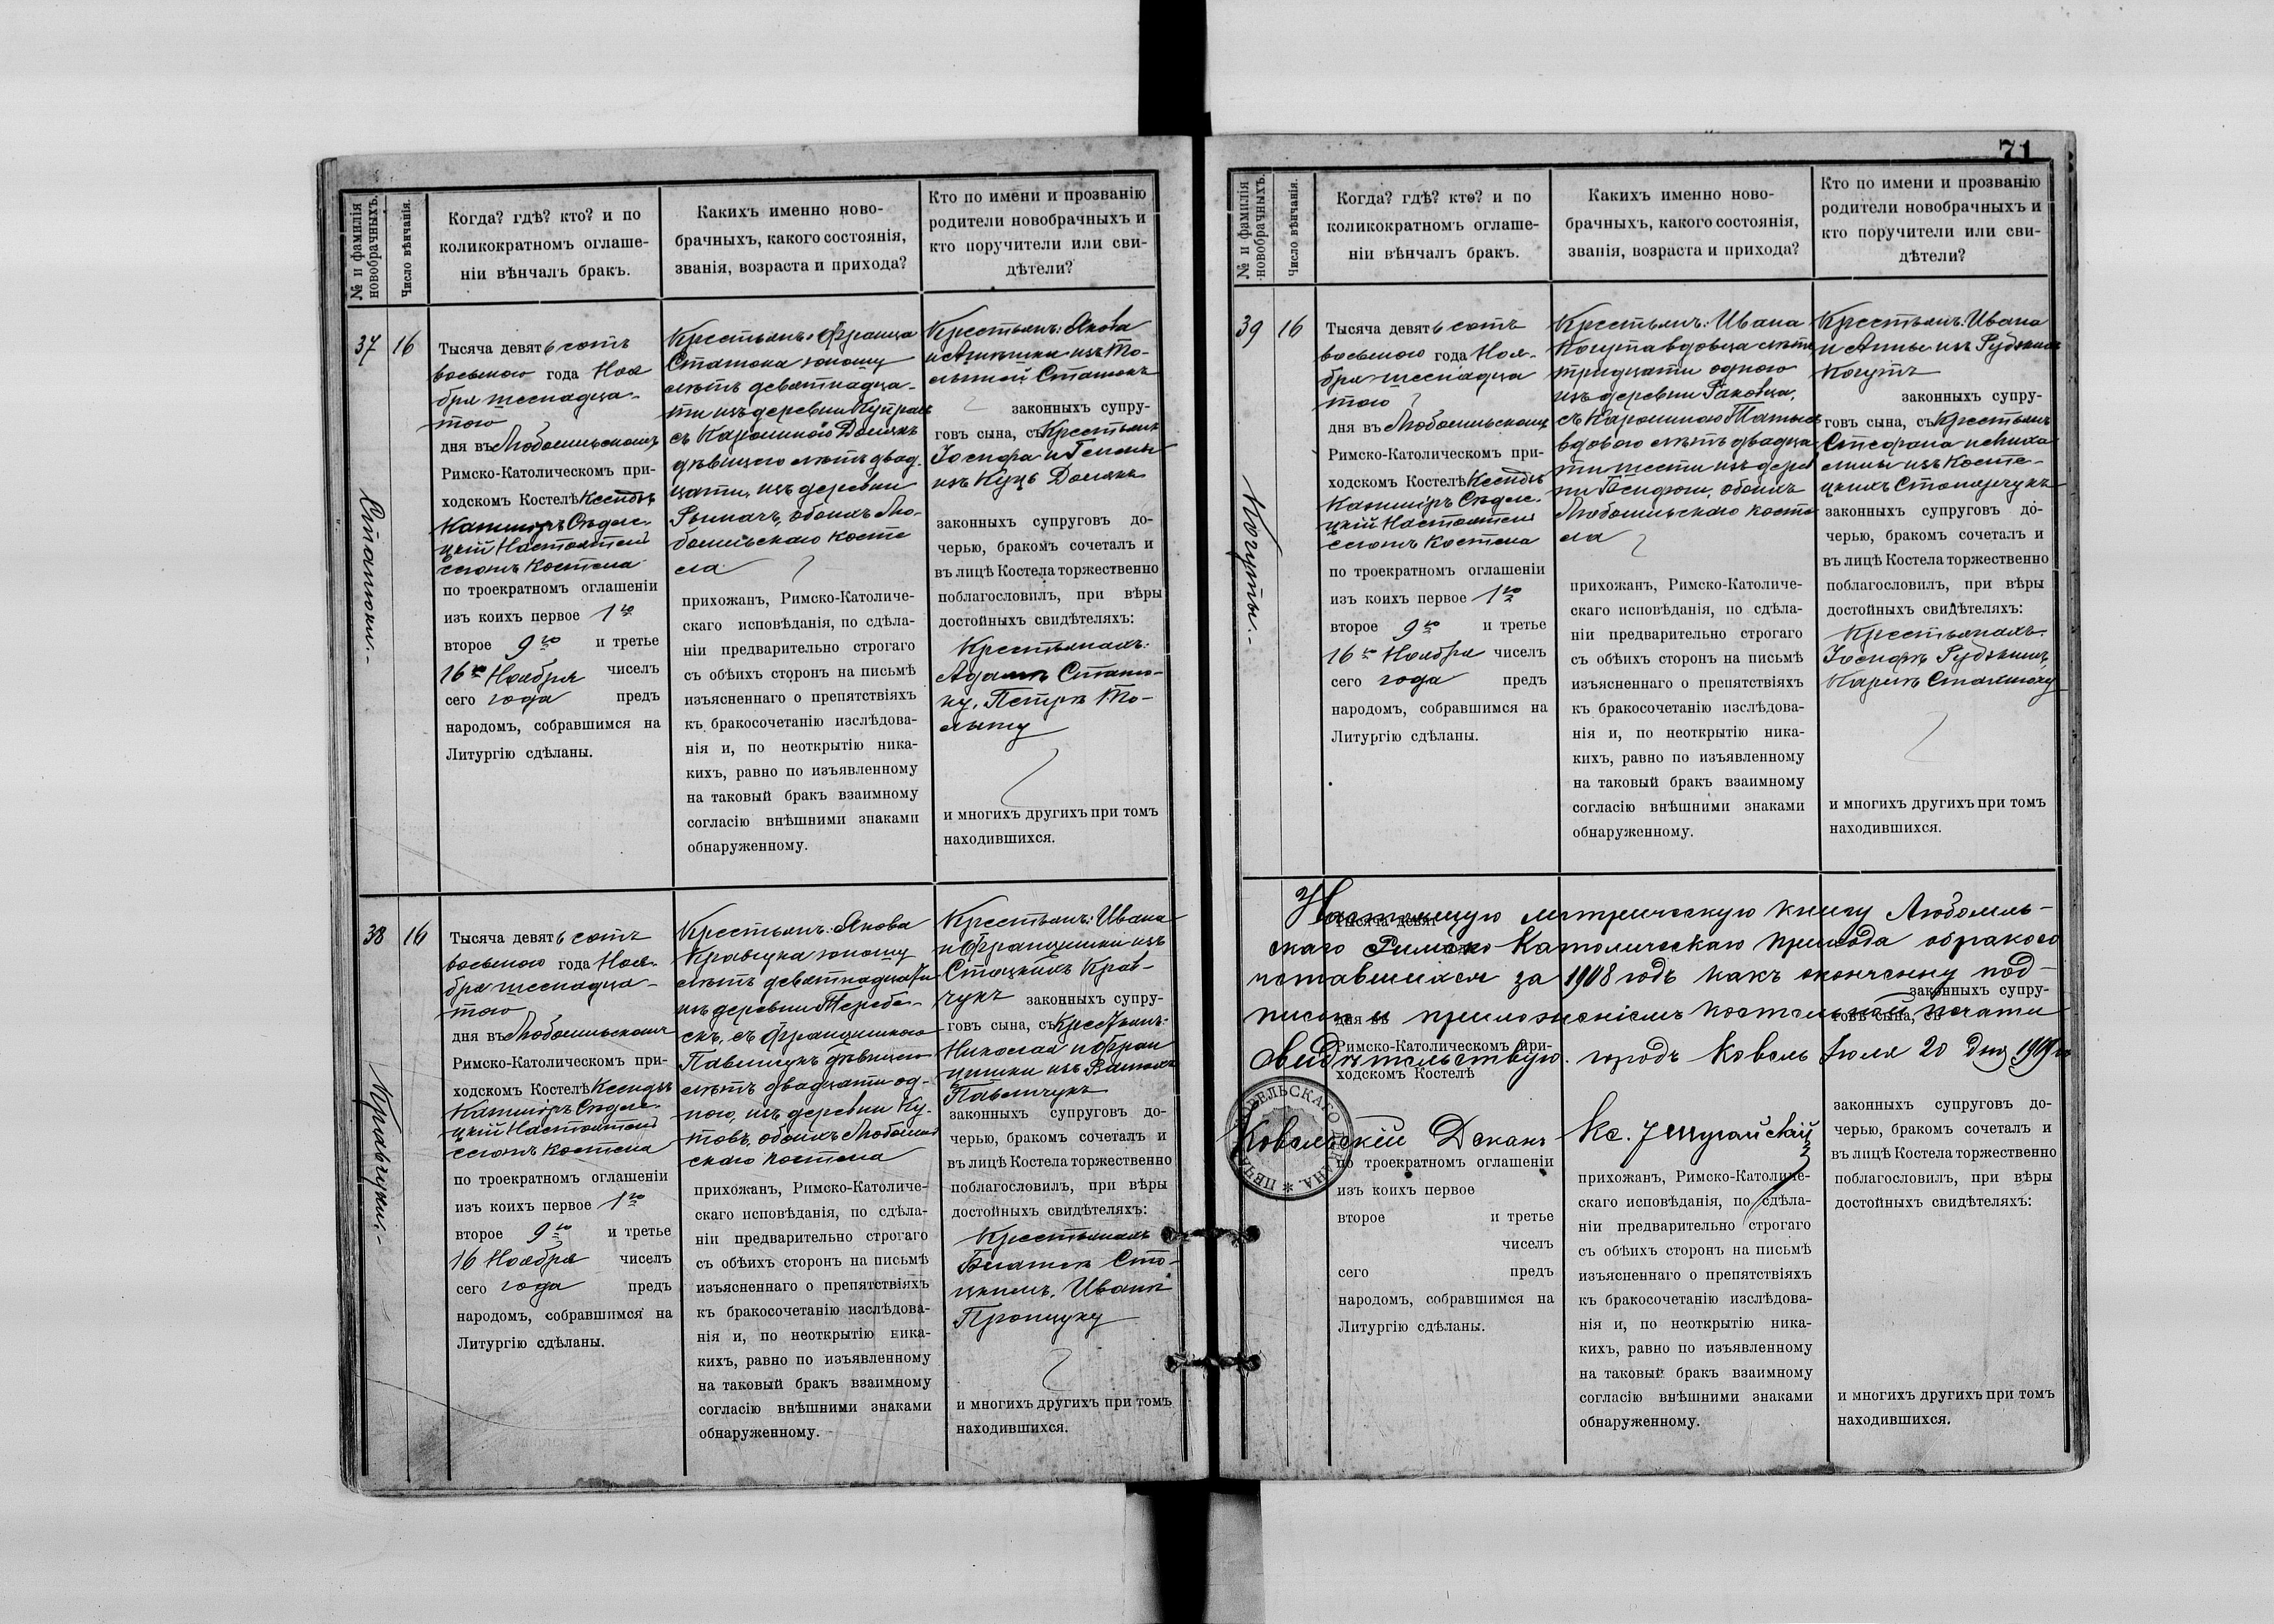 № и фамилія новобрачныхъ.
Число вѣнчанія.
Когда? гдѣ? кто? и по
коликократномъ оглаше-
ніи вѣнчалъ бракъ.
Какихъ именно ново-
брачныхъ, какого состоянія,
званія, возраста и прихода?
Кто по имени и прозванію
родители новобрачныхъ и
кто поручители или сви-
дѣтели?
37
16
Станюки.-
Тысяча девятьсотъ
восьмого года Ноя
бря шеснадца-
того
дня въ Любомльскомъ
Римско-Католическомъ при-
ходскомъ Костелѣ Ксендзъ
Казиміръ Сѣдле-
цкій Настоятель
сего костела
по троекратномъ оглашеніи
изъ коихъ первое 1го
второе 9го и третье
16го Ноября чиселъ
сего года предъ
народомъ, собравшимся на
Литургію сдѣланы.
Крестьянъ: Франца
Станюка юношу
лѣтъ девятнадца-
ти изъ деревни
съ Каролиною
дѣвицею лѣтъ двад-
цати, изъ деревни
Рымачъ, обоихъ Лю-
бомльскаго косте
ла
прихожанъ, Римско-Католиче-
скаго исповѣданія, по сдѣла-
ніи предварительно строгаго
съ обѣихъ сторонъ на письмѣ
изъясненнаго о препятствіяхъ
къ бракосочетанію изслѣдова-
нія и, по неоткрытію ника-
кихъ, равно по изъявленному
на таковый бракъ взаимному
согласію внѣшними знаками
обнаруженному.
Крестьянъ: Якова
изъ
Станюкъ
законныхъ супру-
говъ сына, съ Крестьянъ
Іосифа и
изъ
законныхъ супруговъ до-
черью, бракомъ сочеталъ и
въ лицѣ Костела торжественно
поблагословилъ, при вѣры
достойныхъ свидѣтеляхъ:
Крестьянахъ:
Адамѣ Станю-
ку, Петрѣ
и многихъ другихъ при томъ
находившихся.
38
16
Кравчуки.-
Тысяча девятьсотъ
восьмого года Ноя-
бря шеснадца-
того
дня въ Любомльскомъ
Римско-Католическомъ при-
ходскомъ Костелѣ Ксендзъ
Казиміръ Сѣдле-
цкій Настоятель
сего костела
по троекратномъ оглашеніи
изъ коихъ первое 1го
второе 9го и третье
16 Ноября чиселъ
сего года предъ
народомъ, собравшимся на
Литургію сдѣланы.
Крестьянъ: Якова
Кравчука юношу
лѣтъ девятнадцати
изъ деревни Теребе-
съ Францишкою
Павлицукъ дѣвицею
лѣтъ двадцати од-
ною, изъ деревни Ку-
товъ, обоихъ Любомль
скаго костела
прихожанъ, Римско-Католиче-
скаго исповѣданія, по сдѣла-
ніи предварительно строгаго
съ обѣихъ сторонъ на письмѣ
изъясненнаго о препятствіяхъ
къ бракосочетанію изслѣдова-
нія и, по неоткрытію ника-
кихъ, равно по изъявленному
на таковый бракъ взаимному
согласію внѣшними знаками
обнаруженному.
Крестьянъ: Ивана
и Францишки изъ
Стоцкихъ Крав-
чукъ законныхъ супру-
говъ сына, съ Крестьянъ:
Николая и Фран
цишки изъ
законныхъ супруговъ до-
черью, бракомъ сочеталъ и
въ лицѣ Костела торжественно
поблагословилъ, при вѣры
достойныхъ свидѣтеляхъ:
Крестьянахъ
Сто-
цкимъ, Иванѣ
и многихъ другихъ при томъ
находившихся.
71
№ и фамилія новобрачныхъ.
Число вѣнчанія.
Когда? гдѣ? кто? и по
коликократномъ оглаше-
ніи вѣнчалъ бракъ.
Какихъ именно ново-
брачныхъ, какого состоянія,
званія, возраста и прихода?
Кто по имени и прозванію
родители новобрачныхъ и
кто поручители или сви-
дѣтели?
39
16
Когуты.-
Тысяча девятьсотъ
восьмого года Ноя-
бря шеснадца
того
дня въ Любомльскомъ
Римско-Католическомъ при-
ходскомъ Костелѣ Ксендзъ
Казиміръ Сѣдле-
цкій Настоятель
сего костела
по троекратномъ оглашеніи
изъ коихъ первое 1го
второе 9го и третье
16го Ноября чиселъ
сего года предъ
народомъ, собравшимся на
Литургію сдѣланы.
Крестьянъ: Ивана
Когута вдовца лѣтъ
тридцати одного
изъ деревни Раковца,
съ Каролиною
вдовою лѣтъ двадца
ти шести изъ дерев
ни обоихъ
Любомльскаго косте
ла
прихожанъ, Римско-Католиче-
скаго исповѣданія, по сдѣла-
ніи предварительно строгаго
съ обѣихъ сторонъ на письмѣ
изъясненнаго о препятствіяхъ
къ бракосочетанію изслѣдова-
нія и, по неоткрытію ника-
кихъ, равно по изъявленному
на таковый бракъ взаимному
согласію внѣшними знаками
обнаруженному.
Крестьянъ: Ивана
и Анны изъ
Когутъ
законныхъ супру-
говъ сына, съ Крестьянъ
Стефана и
изъ
законныхъ супруговъ до-
черью, бракомъ сочеталъ и
въ лицѣ Костела торжественно
поблагословилъ, при вѣры
достойныхъ свидѣтеляхъ:
Крестьянахъ:
Іосифѣ
Карлѣ
и многихъ другихъ при томъ
находившихся.
Настоящую метрическую книгу Любомль-
скаго Римско Католическаго прихода о бракосо
четавшихся за 1908 годъ какъ оконченну под-
писью и приложеніемъ костельной печати
свидѣтельствую. городъ Ковель Іюля 20 дня 1909 го
Ковельскій Деканъ Кс.
Тысяча девят
года
дня въ
Римско-Католическомъ при-
ходскомъ Костелѣ
по троекратномъ оглашеніи
изъ коихъ первое
второе и третье
чиселъ
сего предъ
народомъ, собравшимся на
Литургію сдѣланы.
прихожанъ, Римско-Католиче-
скаго исповѣданія, по сдѣла-
ніи предварительно строгаго
съ обѣихъ сторонъ на письмѣ
изъясненнаго о препятствіяхъ
къ бракосочетанію изслѣдова-
нія и, по неоткрытію ника-
кихъ, равно по изъявленному
на таковый бракъ взаимному
согласію внѣшними знаками
обнаруженному.
законныхъ супру-
говъ сына, съ
законныхъ супруговъ до-
черью, бракомъ сочеталъ и
въ лицѣ Костела торжественно
поблагословилъ, при вѣры
достойныхъ свидѣтеляхъ:
и многихъ другихъ при томъ
находившихся.